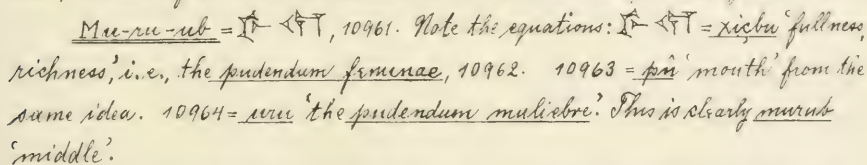 Mu-ru-ub = 𒊩 𒌋𒁯, 10961. Note the equations: = xiçbu ‘fullness,
richness’, i.e., the pudendum feminae, 10962. 10963 = pû ‘mouth’ from the
same idea. 10964 = uru ‘the pudendum muliebre’. This is clearly murub
‘middle’.